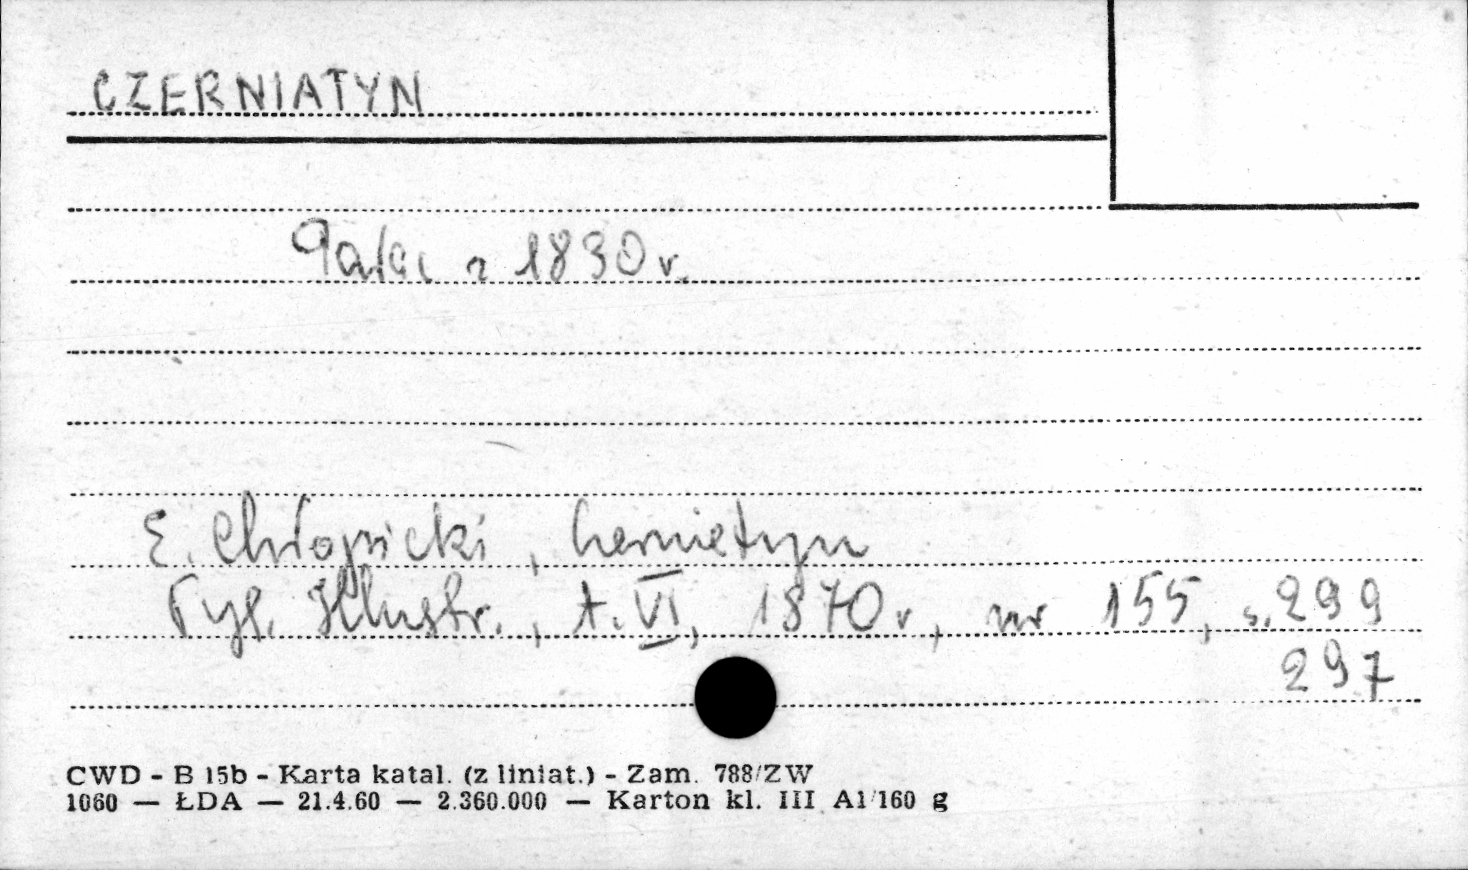 CZERNIATYN
Pałac z 1830 r.
E. Chłopicki, Czerniatyn
Tyg. Illustr., t. VI, 1870 r, nr 155, s. 299
297
CWD - B 15b - Karta katal. (z liniat.) - Zam. 788/ZW
1060 — ŁDA — 21.4.60 — 2.360.000 — Karton kl. III A1/160 g